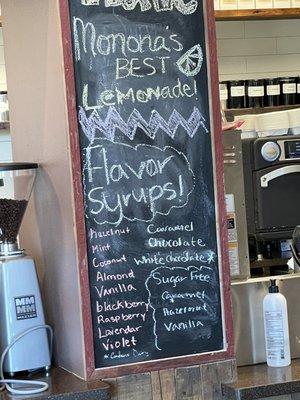 Monona's
BEST
Lemonade!
Flavor
Syrups!
Hazelnut
Mint
Coconut
Almond
Vanilla
blackberry
Raspberry
Lavendar
Violet
Caramel
Chocolate
White Chocolate *
Sugar Free
Caramel
Hazelnut
Vanilla
* Contains Dairy